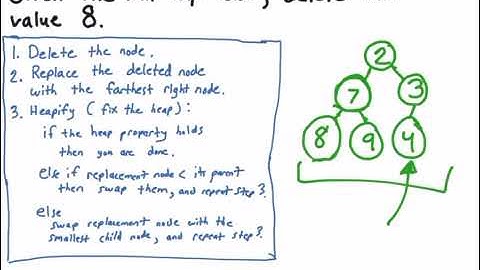 value 8.
1. Delete the node.
2. Replace the deleted node
with the farthest right node.
3. Heapify (fix the heap):
if the heap property holds
then you are done.
else if replacement node < its parent
then swap them, and repeat step 3.
else
swap replacement node with the
smallest child node, and repeat step 3.
2
7 3
8 9 4